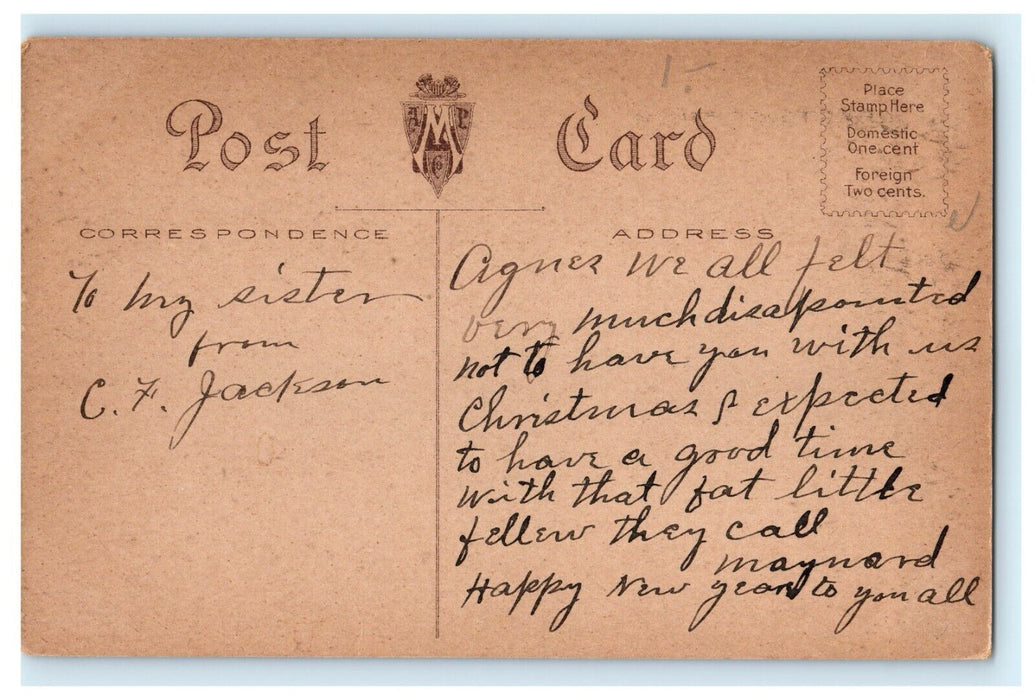 Post Card
A M P Co
1-
Place
Stamp Here
Domestic
One cent
Foreign
Two cents.
CORRESPONDENCE
To my sister
from
C. F. Jackson
ADDRESS
Agnes We all felt
very much disapointed
not to have you with us
Christmas I expected
to have a good time
with that fat little
fellew they call
maynard
Happy New year to you all